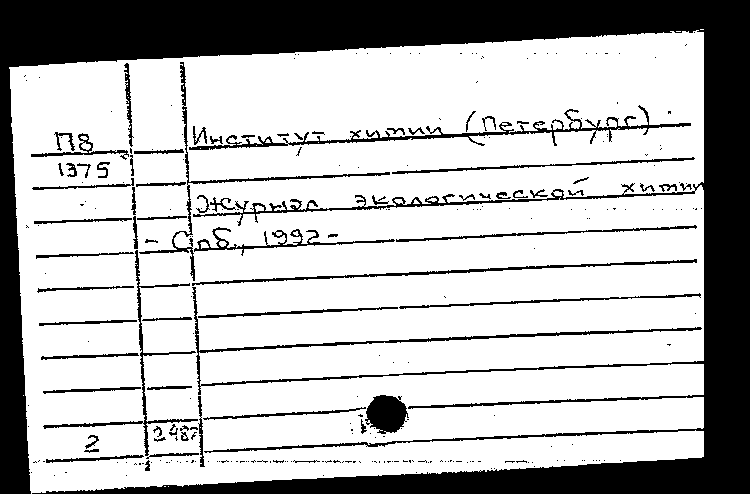 П8 Институт химии (Петербург)
1375
Журнал экологической химии
- Спб., 1992-
2 2487